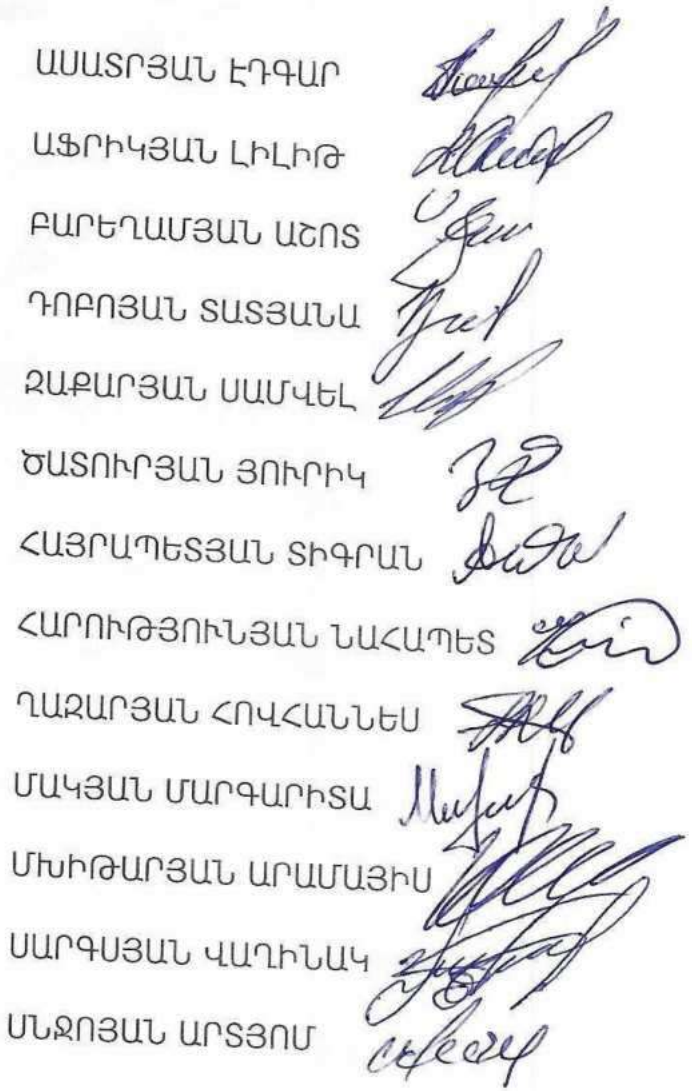 ԱՍԱՏՐՅԱՆ ԷԴԳԱՐ
ԱՖՐԻԿՅԱՆ ԼԻԼԻԹ
ԲԱՐԵՂԱՄՅԱՆ ԱՇՈՏ
ԴՈԲՈՅԱՆ ՏԱՏՅԱՆԱ
ԶԱՔԱՐՅԱՆ ՍԱՄՎԵԼ
ԾԱՏՈՒՐՅԱՆ ՅՈՒՐԻԿ
ՀԱՅՐԱՊԵՏՅԱՆ ՏԻԳՐԱՆ
ՀԱՐՈՒԹՅՈՒՆՅԱՆ ՆԱՀԱՊԵՏ
ՂԱԶԱՐՅԱՆ ՀՈՎՀԱՆՆԵՍ
ՄԱԿՅԱՆ ՄԱՐԳԱՐԻՏԱ
ՄԽԻԹԱՐՅԱՆ ԱՐԱՄԱՅԻՍ
ՍԱՐԳՍՅԱՆ ՎԱՂԻՆԱԿ
ՍՆՋՈՅԱՆ ԱՐՏՅՈՄ